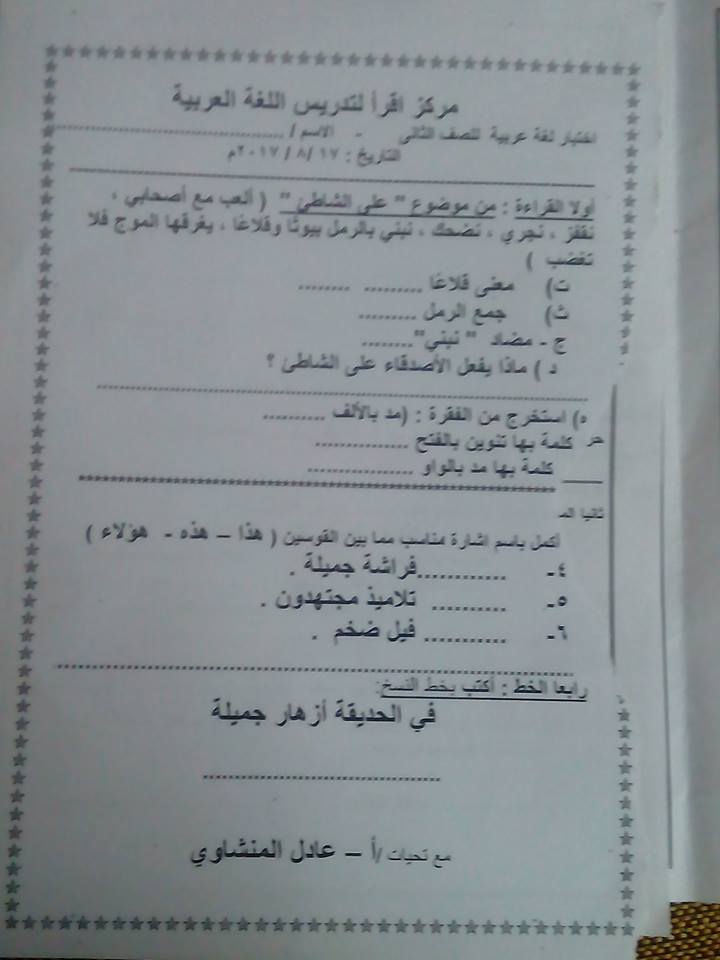 مركز اقرأ لتدريس اللغة العربية
اختبار لغة عربية للصف الثانى - الاسم / ........................................
التاريخ : ١٧ /٨ / ٢٠١٧م
أولا القراءة : من موضوع " على الشاطئ " ( ألعب مع أصحابي ،
نقفز ، نجري ، نضحك ، نبني بالرمل بيوتًا وقلاعًا ، يغرقها الموج فلا
نغضب )
ت) معنى قلاعًا ......... ........
ث) جمع الرمل .........
ج - مضاد " نبني"........
د ) ماذا يفعل الأصدقاء على الشاطئ ؟
ه) استخرج من الفقرة : (مد بالألف ..........
كلمة بها تنوين بالفتح ...............
كلمة بها مد بالواو .................
ثانيا
أكمل باسم اشارة مناسب مما بين القوسين ( هذا – هذه - هؤلاء )
٤- ............فراشة جميلة .
٥- .......... تلاميذ مجتهدون .
٦- ........... فيل ضخم .
رابعا الخط : أكتب بخط النسخ:
في الحديقة أزهار جميلة
........................................
مع تحيات /أ – عادل المنشاوي